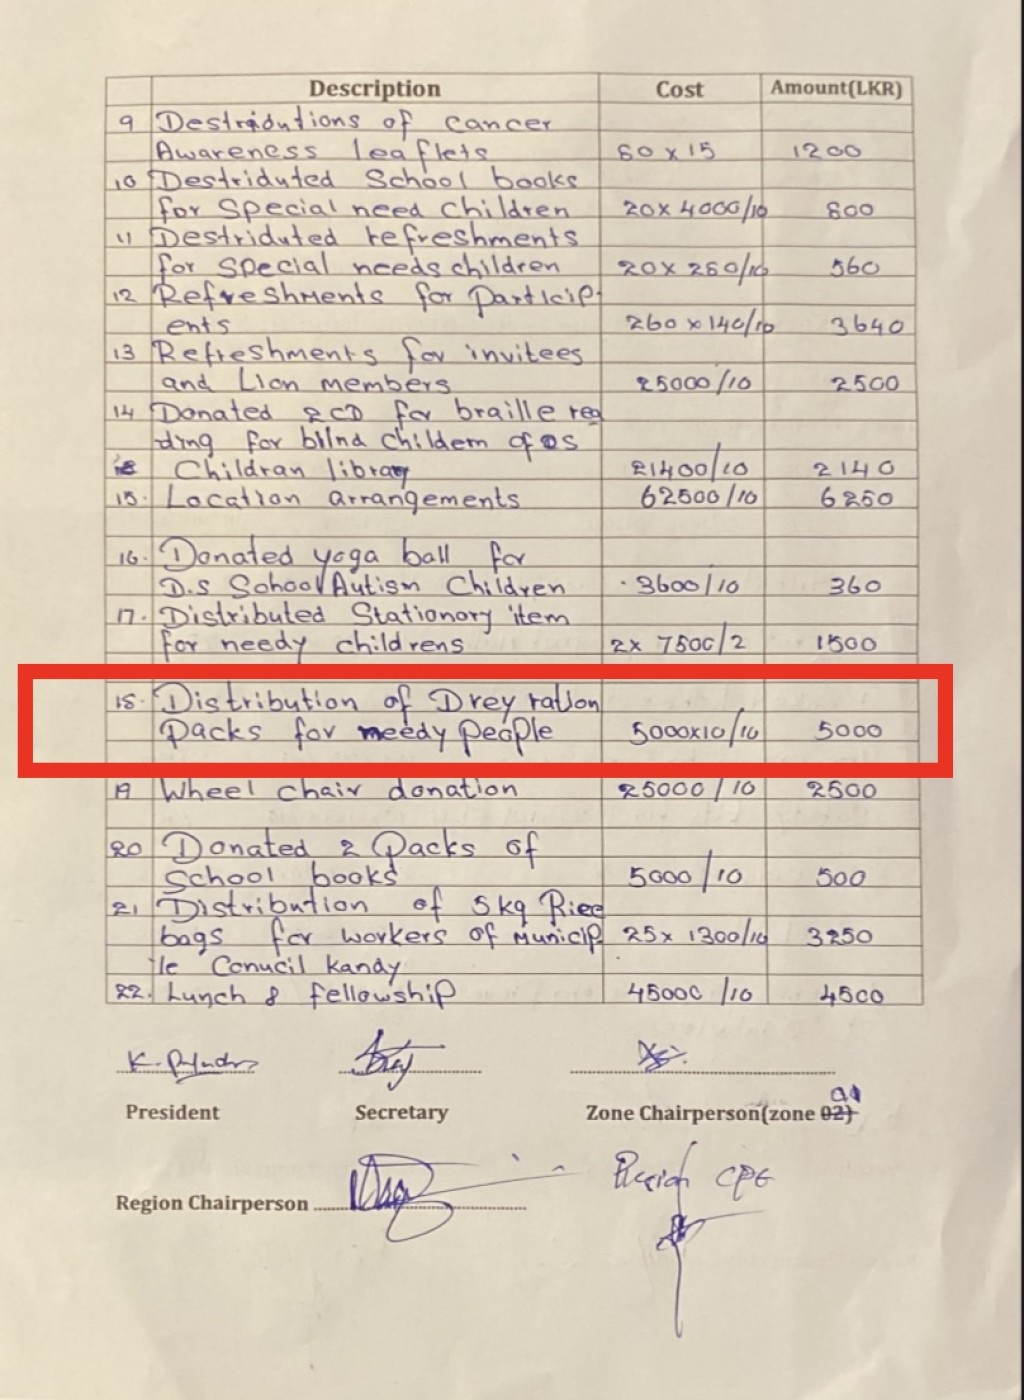 Description Cost Amount(LKR)
9 Destridutions of cancer
Awareness leaflets 80 x 15 1200
10 Destriduted School books
for special need children 20x 4000/10 800
11 Destriduted refreshments
for special needs children 20x 280/10 560
12 Refreshments for particip
ents 260 x 140/10 3640
13 Refreshments for invitees
and Lion members 25000/10 2500
14 Donated 2CD for braille rea
ding for bilnd childem of DS
Childran library 21400/10 2140
15. Location arrangements 62500/10 6250
16. Donated yoga ball for
D.S School Autism Children 3600/10 360
17. Distributed Stationory item
for needy childrens 2x 7500/2 1500
18. Distribution of Drey ration
Packs for needy people 5000x10/10 5000
19 Wheel chair donation 25000/10 2500
20 Donated 2 Packs of
School books 5000/10 500
21, Distribution of 5kg Rice
bags for workers of Municip 25x 1300/10 3250
ile Conucil kandy
22. Lunch & fellowship 45000/10 4500
President Secretary Zone Chairperson(zone 02)
Region Chairperson